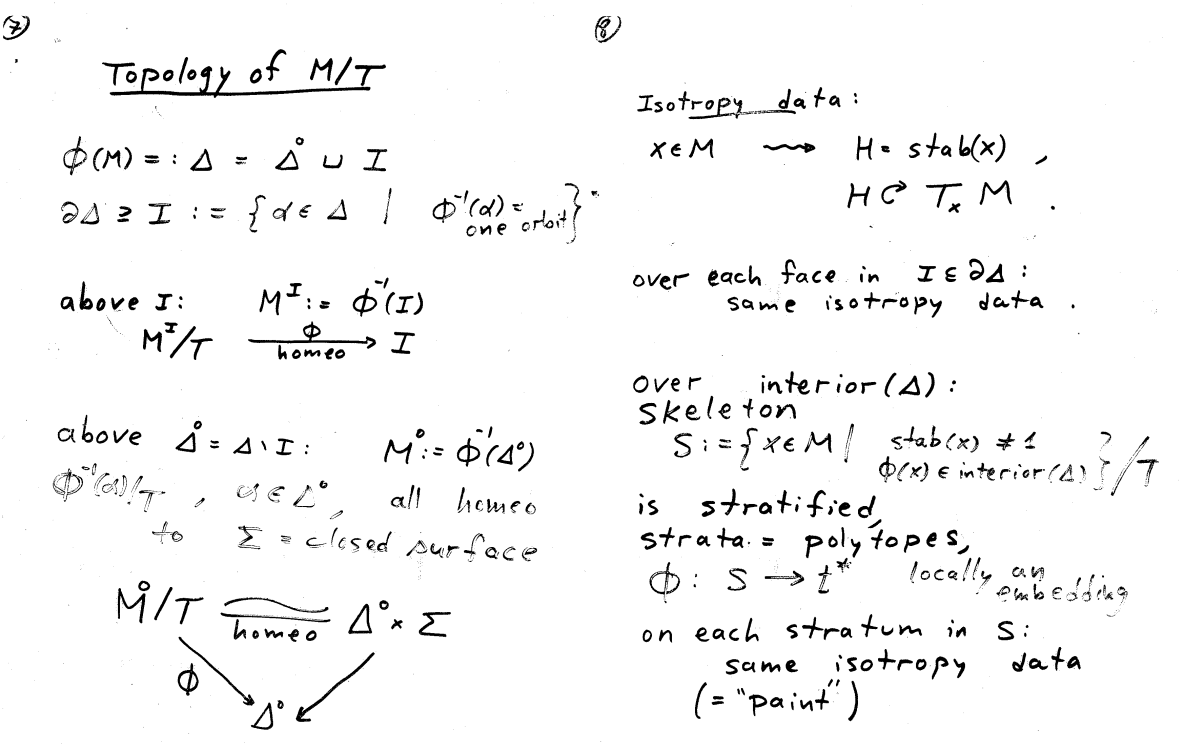 (7)
Topology of M/T
ϕ(M) =: Δ = Δ° ⊔ I
∂Δ ⊇ I := {α ∈ Δ | ϕ⁻¹(α) = one orbit}
above I: Mᴵ := ϕ⁻¹(I)
Mᴵ/T —ϕ→ I
homeo
above Δ° = Δ∖I: M° := ϕ⁻¹(Δ°)
ϕ⁻¹(α)/T, α ∈ Δ°, all homeo
to Σ = closed surface
M°/T ≅ Δ° × Σ
homeo
ϕ
Δ°
(8)
Isotropy data:
x∈M ⇝ H = stab(x),
H ↻ TₓM.
over each face in I ∈ ∂Δ:
same isotropy data.
over interior(Δ):
skeleton
S := {x∈M | stab(x) ≠ 1
ϕ(x) ∈ interior(Δ)}/T
is stratified,
strata = polytopes,
ϕ: S → t* locally an
embedding
on each stratum in S:
same isotropy data
(= "paint")